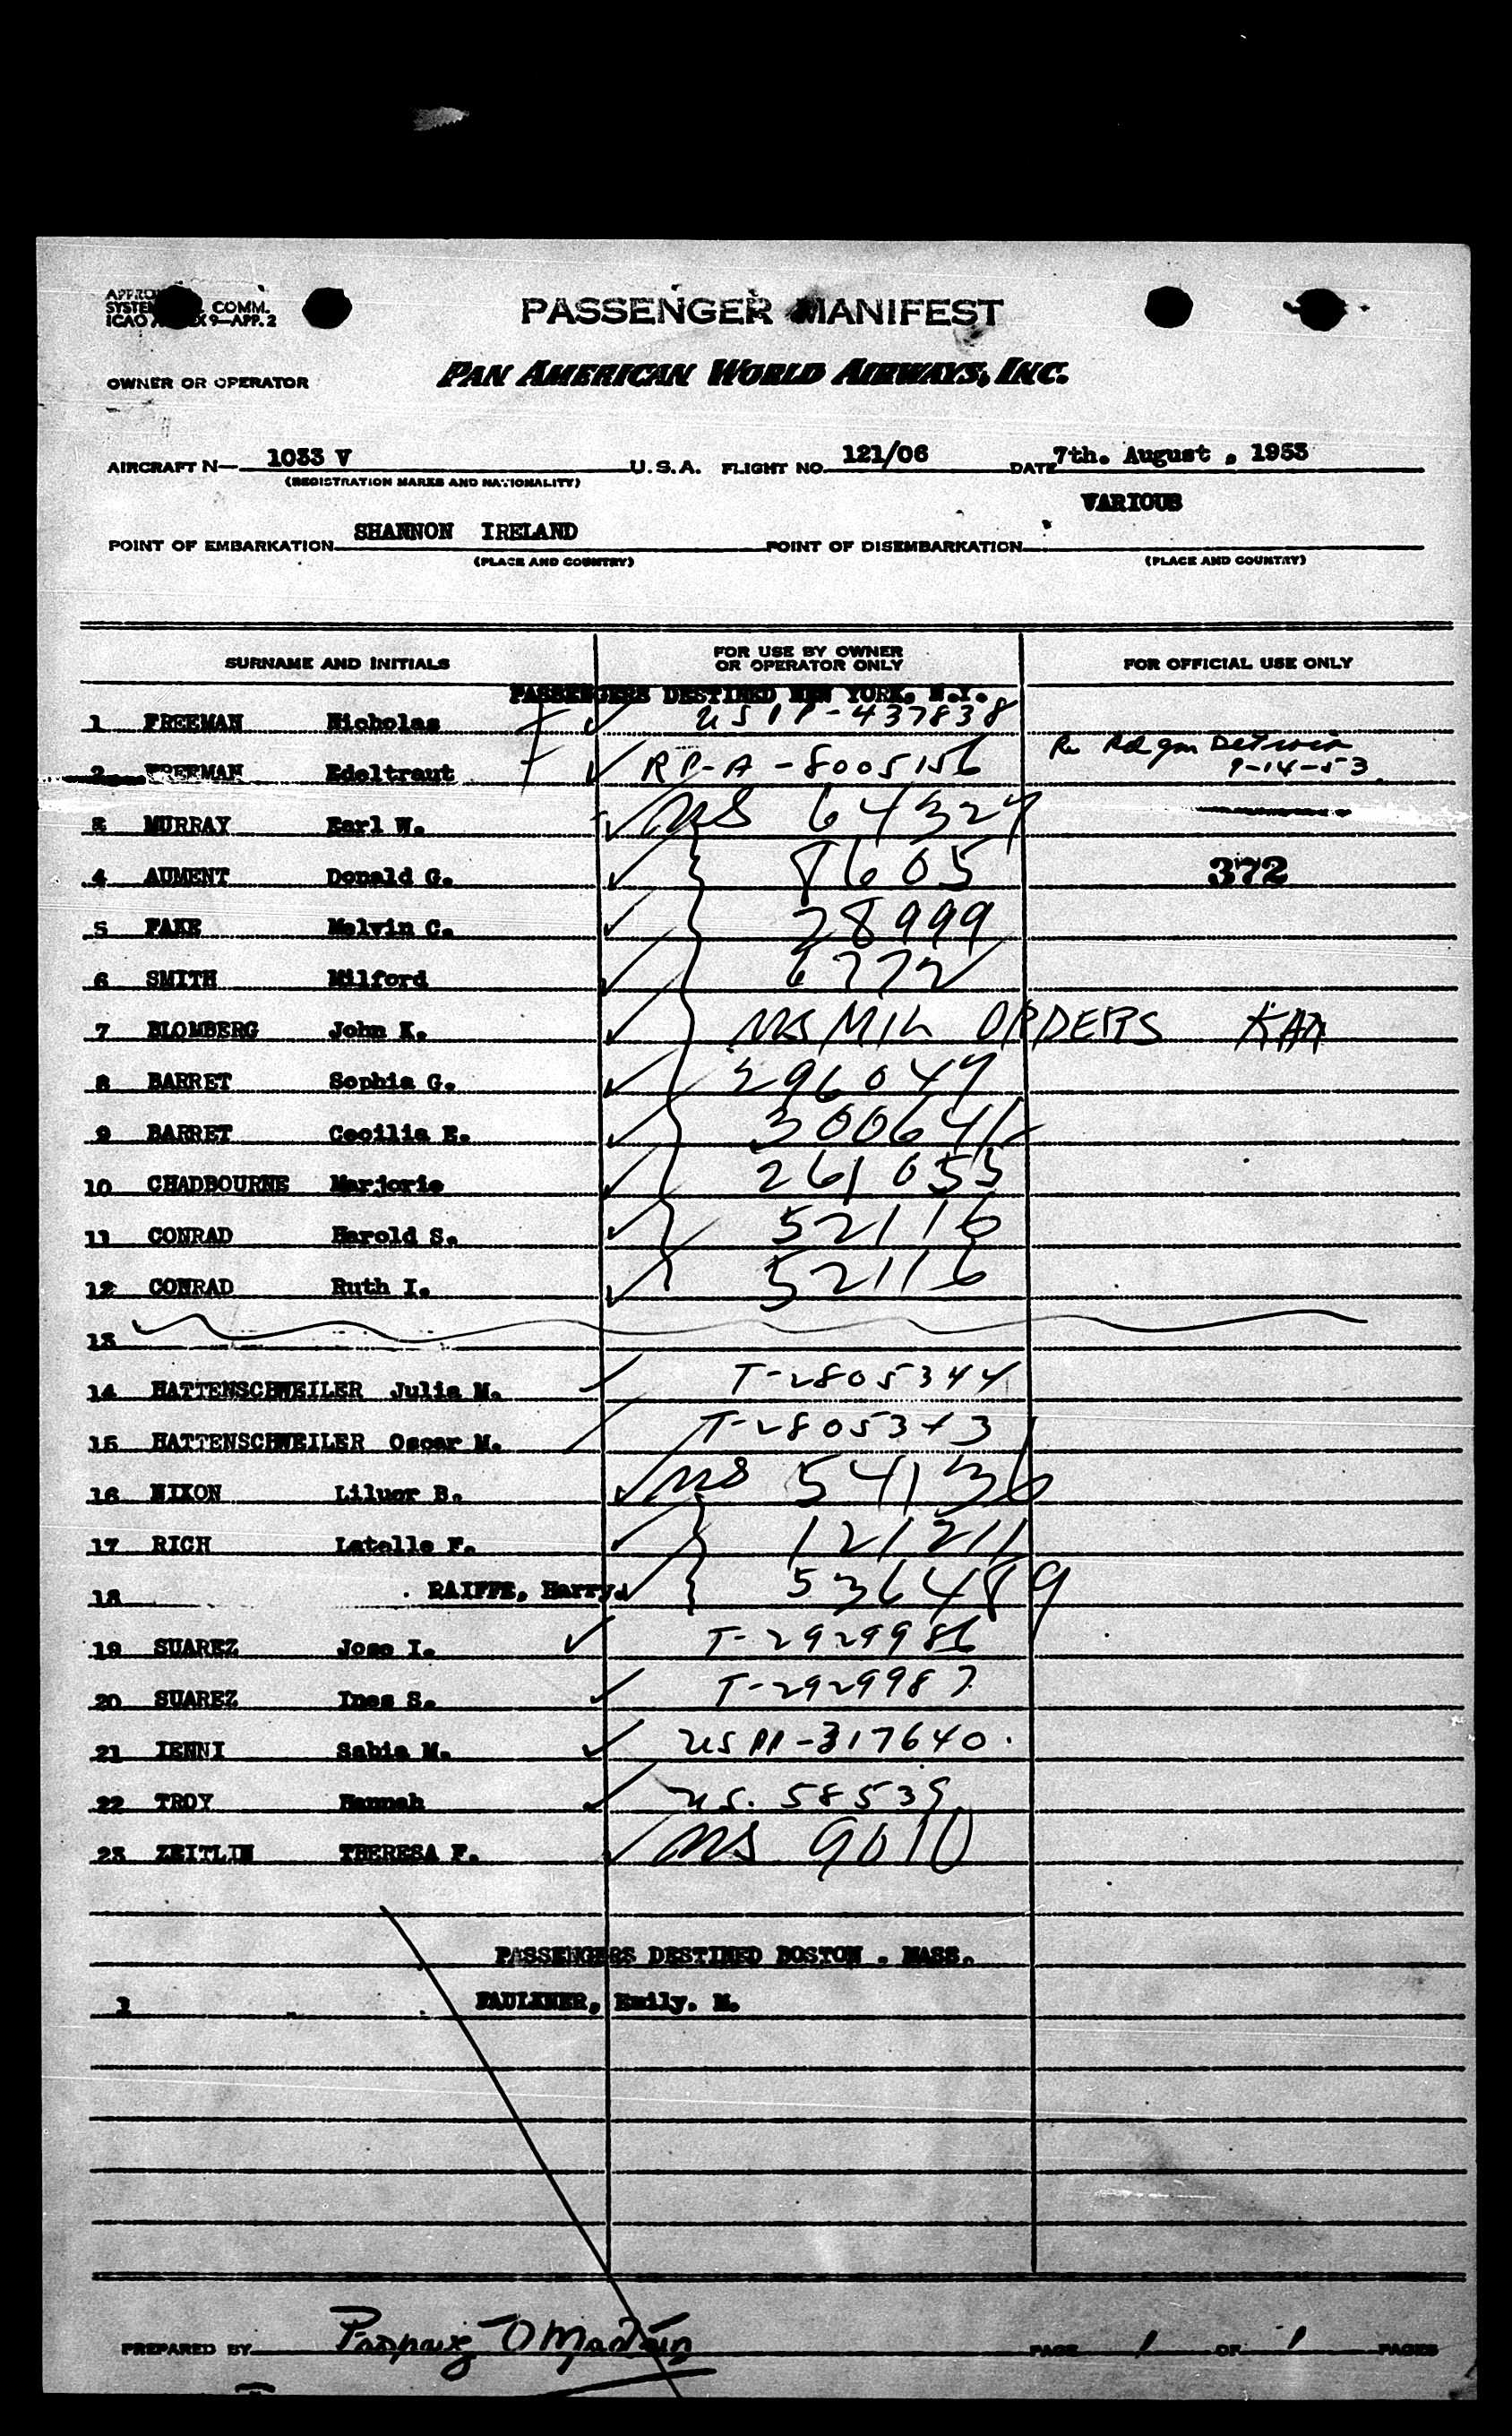 PASSENGER MANIFEST
PAN AMERICAN WORLD AIRWAYS, INC.
COMM.
9—APP. 2
OWNER OR OPERATOR
AIRCRAFT N— 1033 V U.S.A. FLIGHT NO. 121/06 DATE 7th. August , 1953
(REGISTRATION MARKS AND NATIONALITY)
VARIOUS
POINT OF EMBARKATION SHANNON IRELAND POINT OF DISEMBARKATION
(PLACE AND COUNTRY) (PLACE AND COUNTRY)
SURNAME AND INITIALS FOR USE BY OWNER OR OPERATOR ONLY FOR OFFICIAL USE ONLY
PASSENGERS DESTINED NEW YORK. N.Y.
1 FREEMAN Nicholas USPP-437838
2 FREEMAN Edeltraut RP-A-8005156 Detroit
9-14-53
3 MURRAY Earl W. 64327
4 AUMENT Donald G. 8605 372
5 FAKE Melvin C. 28999
6 SMITH Milford 6772
7 BLOMBERG John K. MIL ORDERS
8 BARRET Sophia G. 296047
9 BARRET Cecilia E. 300641
10 CHADBOURNE Marjorie 261055
11 CONRAD Harold S. 52116
12 CONRAD Ruth I. 52116
13
14 HATTENSCHWEILER Julia M. T-2805344
15 HATTENSCHWEILER Oscar M. T-2805343
16 NIXON B. 54136
17 RICH Latelle F. 121211
18 RAIFFE, Harry. 536489
19 SUAREZ Jose I. T-2929986
20 SUAREZ Ines S. T-2929987
21 IENNI Sabia M. USPP-317640.
22 TROY Hannah US. 58539
23 ZEITLIN THERESA F. 9010
PASSENGERS DESTINED BOSTON . MASS.
1 FAULKNER, Emily. M.
PREPARED BY PAGE 1 OF 1 PAGES